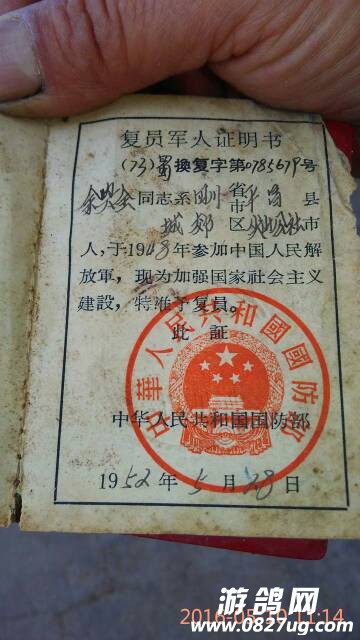 复员军人证明书
(73)蜀換复字第0785679号
同志系四川省市平昌县
城郊区公社市
人,于1948年参加中国人民解
放軍,现为加强国家社会主义
建設,特准予复員。
此証
中華人民共和國國防部
中华人民共和国国防部
1952年5月28日
游鸽网
2016-05-20 11:14
www.0827ug.com